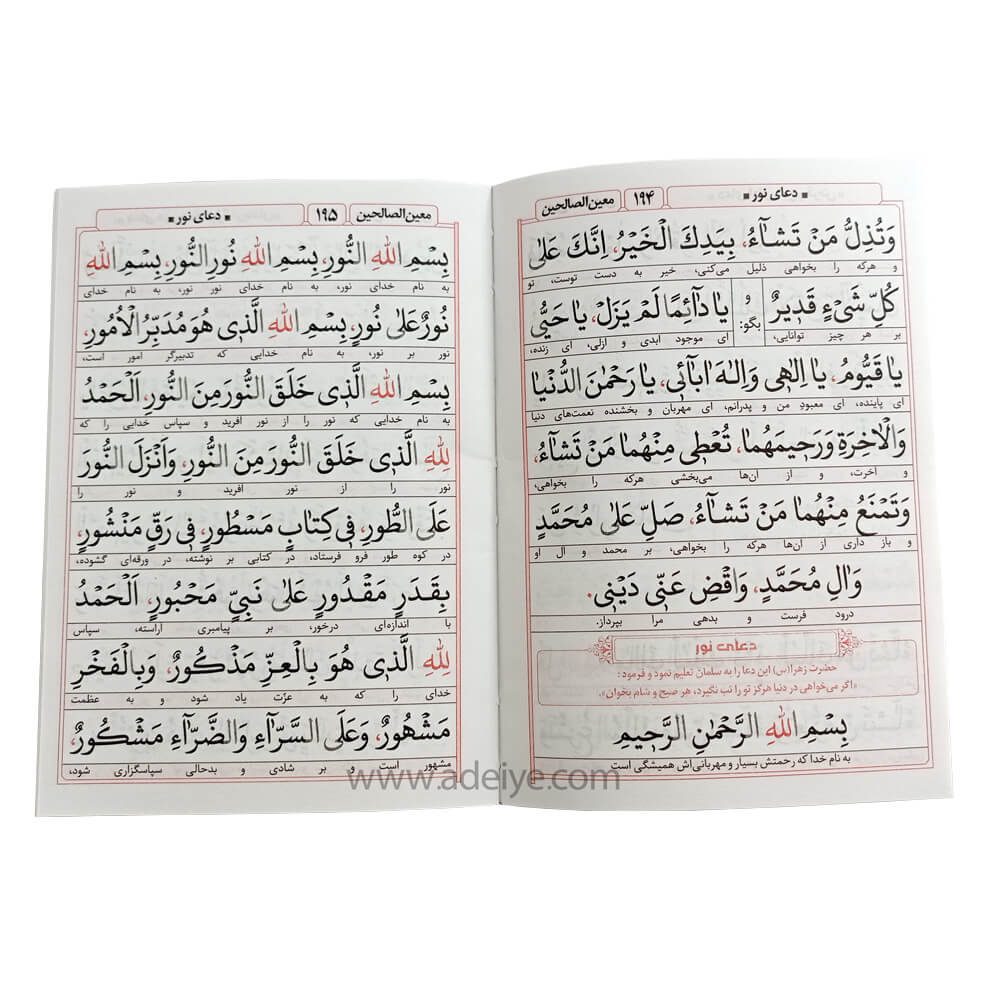 ▪ دعای نور ▪
۱۹۴
معین‌الصالحین
وَتُذِلُّ مَنْ تَشاۤءُ، بِيَدِكَ الْخَيْرُ، اِنَّكَ عَلىٰ
و هرکه را بخواهی ذلیل می‌کنی، خیر به دست توست، تو
كُلِّ شَيْءٍ قَديرٌ
بر هر چیز توانایی،
و بگو:
يا دآئِمًا لَمْ يَزَلْ، يا حَيُّ
ای موجود ابدی و ازلی، ای زنده،
يا قَيُّومُ، يا اِلٰهى وَاِلٰهَ اٰبائى، يا رَحْمٰنَ الدُّنْيا
ای پاینده، ای معبودِ من و پدرانم، ای مهربان و بخشنده نعمت‌های دنیا
وَالْاٰخِرَةِ وَرَحيمَهُما، تُعْطى مِنْهُما مَنْ تَشاۤءُ،
و آخرت، و از آن‌ها می‌بخشی هرکه را بخواهی،
وَتَمْنَعُ مِنْهُما مَنْ تَشاۤءُ، صَلِّ عَلىٰ مُحَمَّدٍ
و باز داری از آن‌ها هرکه را بخواهی، بر محمد و آل او
وَاٰلِ مُحَمَّدٍ، وَاقْضِ عَنّى دَيْنى.
درود فرست و بدهی مرا بپرداز.
دعای نور
حضرت زهرا(س) این دعا را به سلمان تعلیم نمود و فرمود:
«اگر می‌خواهی در دنیا هرگز تو را تب نگیرد، هر صبح و شام بخوان».
بِسْمِ اللهِ الرَّحْمٰنِ الرَّحيمِ
به نام خدا که رحمتش بسیار و مهربانی‌اش همیشگی است
معین‌الصالحین
۱۹۵
▪ دعای نور ▪
بِسْمِ اللهِ النُّورِ، بِسْمِ اللهِ نُورِ النُّورِ، بِسْمِ اللهِ
به نام خدای نور، به نام خدای نور نور، به نام خدای
نُورٌ عَلىٰ نُورٍ، بِسْمِ اللهِ الَّذى هُوَ مُدَبِّرُ الْاُمُورِ،
نور بر نور، به نام خدایی که تدبیرگر امور است،
بِسْمِ اللهِ الَّذى خَلَقَ النُّورَ مِنَ النُّورِ، اَلْحَمْدُ
به نام خدایی که نور را از نور آفرید و سپاس خدایی را که
لِلّٰهِ الَّذى خَلَقَ النُّورَ مِنَ النُّورِ، وَاَنْزَلَ النُّورَ
نور را از نور آفرید و نور را
عَلَى الطُّورِ، فى كِتابٍ مَسْطُورٍ، فى رَقٍّ مَنْشُورٍ،
در کوه طور فرو فرستاد، در کتابی بر نوشته، در ورقه‌ای گشوده،
بِقَدَرٍ مَقْدُورٍ، عَلىٰ نَبِيٍّ مَحْبُورٍ، اَلْحَمْدُ
با اندازه‌ای درخور، بر پیامبری آراسته، سپاس
لِلّٰهِ الَّذى هُوَ بِالْعِزِّ مَذْكُورٌ، وَبِالْفَخْرِ
خدای را که به عزّت یاد شود و به عظمت
مَشْهُورٌ، وَعَلَى السَّرّاۤءِ وَالضَّرّاۤءِ مَشْكُورٌ،
مشهور است و بر شادی و بدحالی سپاسگزاری شود،
www.adeiye.com